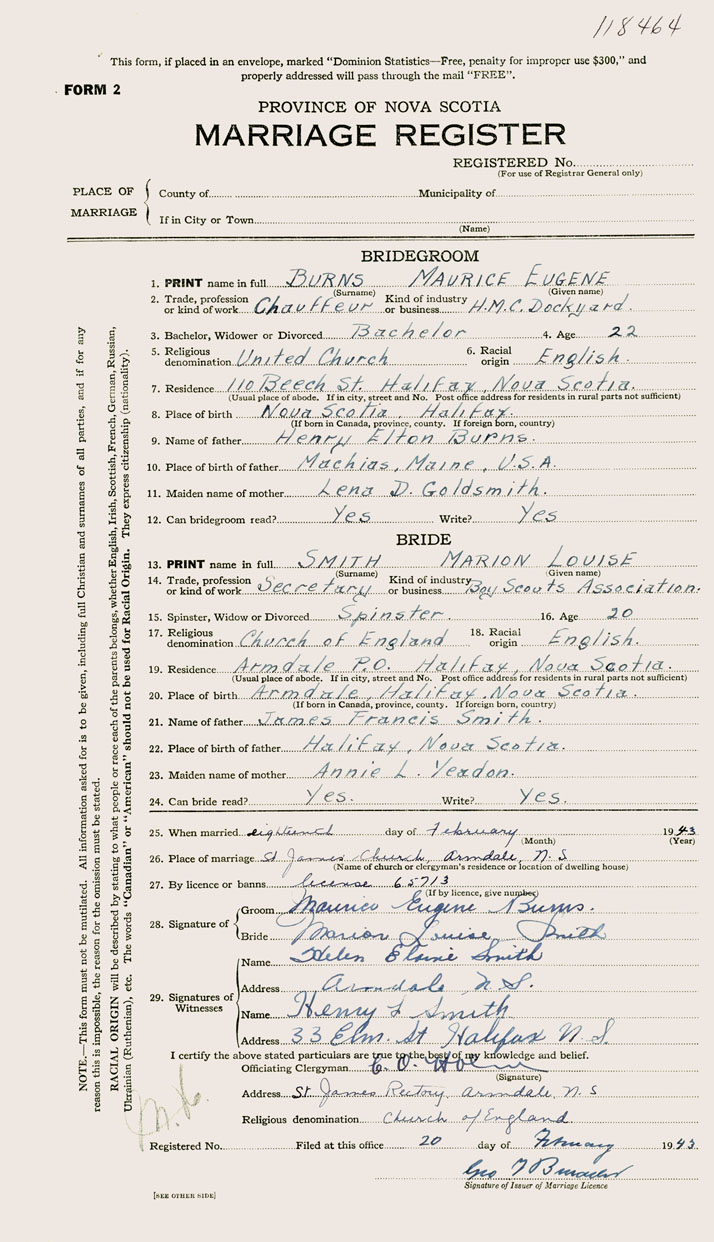 118464
This form, if placed in an envelope, marked "Dominion Statistics—Free, penalty for improper use $300," and
properly addressed will pass through the mail "FREE".
FORM 2
PROVINCE OF NOVA SCOTIA
MARRIAGE REGISTER
REGISTERED No.
(For use of Registrar General only)
PLACE OF MARRIAGE
County of Municipality of
If in City or Town
(Name)
BRIDEGROOM
1. PRINT name in full BURNS MAURICE EUGENE
(Surname) (Given name)
2. Trade, profession or kind of work Chauffeur Kind of industry or business H.M.C. Dockyard.
3. Bachelor, Widower or Divorced Bachelor 4. Age 22
5. Religious denomination United Church 6. Racial origin English.
7. Residence 110 Beech St. Halifax, Nova Scotia.
(Usual place of abode. If in city, street and No. Post office address for residents in rural parts not sufficient)
8. Place of birth Nova Scotia, Halifax.
(If born in Canada, province, county. If foreign born, country)
9. Name of father Henry Elton Burns.
10. Place of birth of father Machias, Maine, U.S.A.
11. Maiden name of mother Lena D. Goldsmith.
12. Can bridegroom read? Yes Write? Yes
BRIDE
13. PRINT name in full SMITH MARION LOUISE
(Surname) (Given name)
14. Trade, profession or kind of work Secretary Kind of industry or business Boy Scouts Association.
15. Spinster, Widow or Divorced Spinster. 16. Age 20
17. Religious denomination Church of England 18. Racial origin English.
19. Residence Armdale P.O. Halifax, Nova Scotia.
(Usual place of abode. If in city, street and No. Post office address for residents in rural parts not sufficient)
20. Place of birth Armdale, Halifax, Nova Scotia.
(If born in Canada, province, county. If foreign born, country)
21. Name of father James Francis Smith.
22. Place of birth of father Halifax, Nova Scotia.
23. Maiden name of mother Annie L. Yeadon.
24. Can bride read? Yes. Write? Yes.
25. When married eighteenth day of February 1943
(Month) (Year)
26. Place of marriage St James Church, Armdale, N.S
(Name of church or clergyman's residence or location of dwelling house)
27. By licence or banns license 65713
(If by licence, give number)
28. Signature of
Groom Maurice Eugene Burns.
Bride Marion Louise Smith
29. Signatures of Witnesses
Name Helen Elaine Smith
Address Armdale N.S.
Name Henry L Smith
Address 33 Elm. St Halifax N.S.
I certify the above stated particulars are true to the best of my knowledge and belief.
Officiating Clergyman
(Signature)
Address St James Rectory, Armdale, N.S
Religious denomination Church of England.
Registered No. Filed at this office 20 day of February 1943.
Signature of Issuer of Marriage Licence
[SEE OTHER SIDE]
NOTE.—This form must not be mutilated. All information asked for is to be given, including full Christian and surnames of all parties, and if for any
reason this is impossible, the reason for the omission must be stated.
RACIAL ORIGIN will be described by stating to what people or race each of the parents belongs, whether English, Irish, Scottish, French, German, Russian,
Ukrainian (Ruthenian), etc. The words "Canadian" or "American" should not be used for Racial Origin. They express citizenship (nationality).